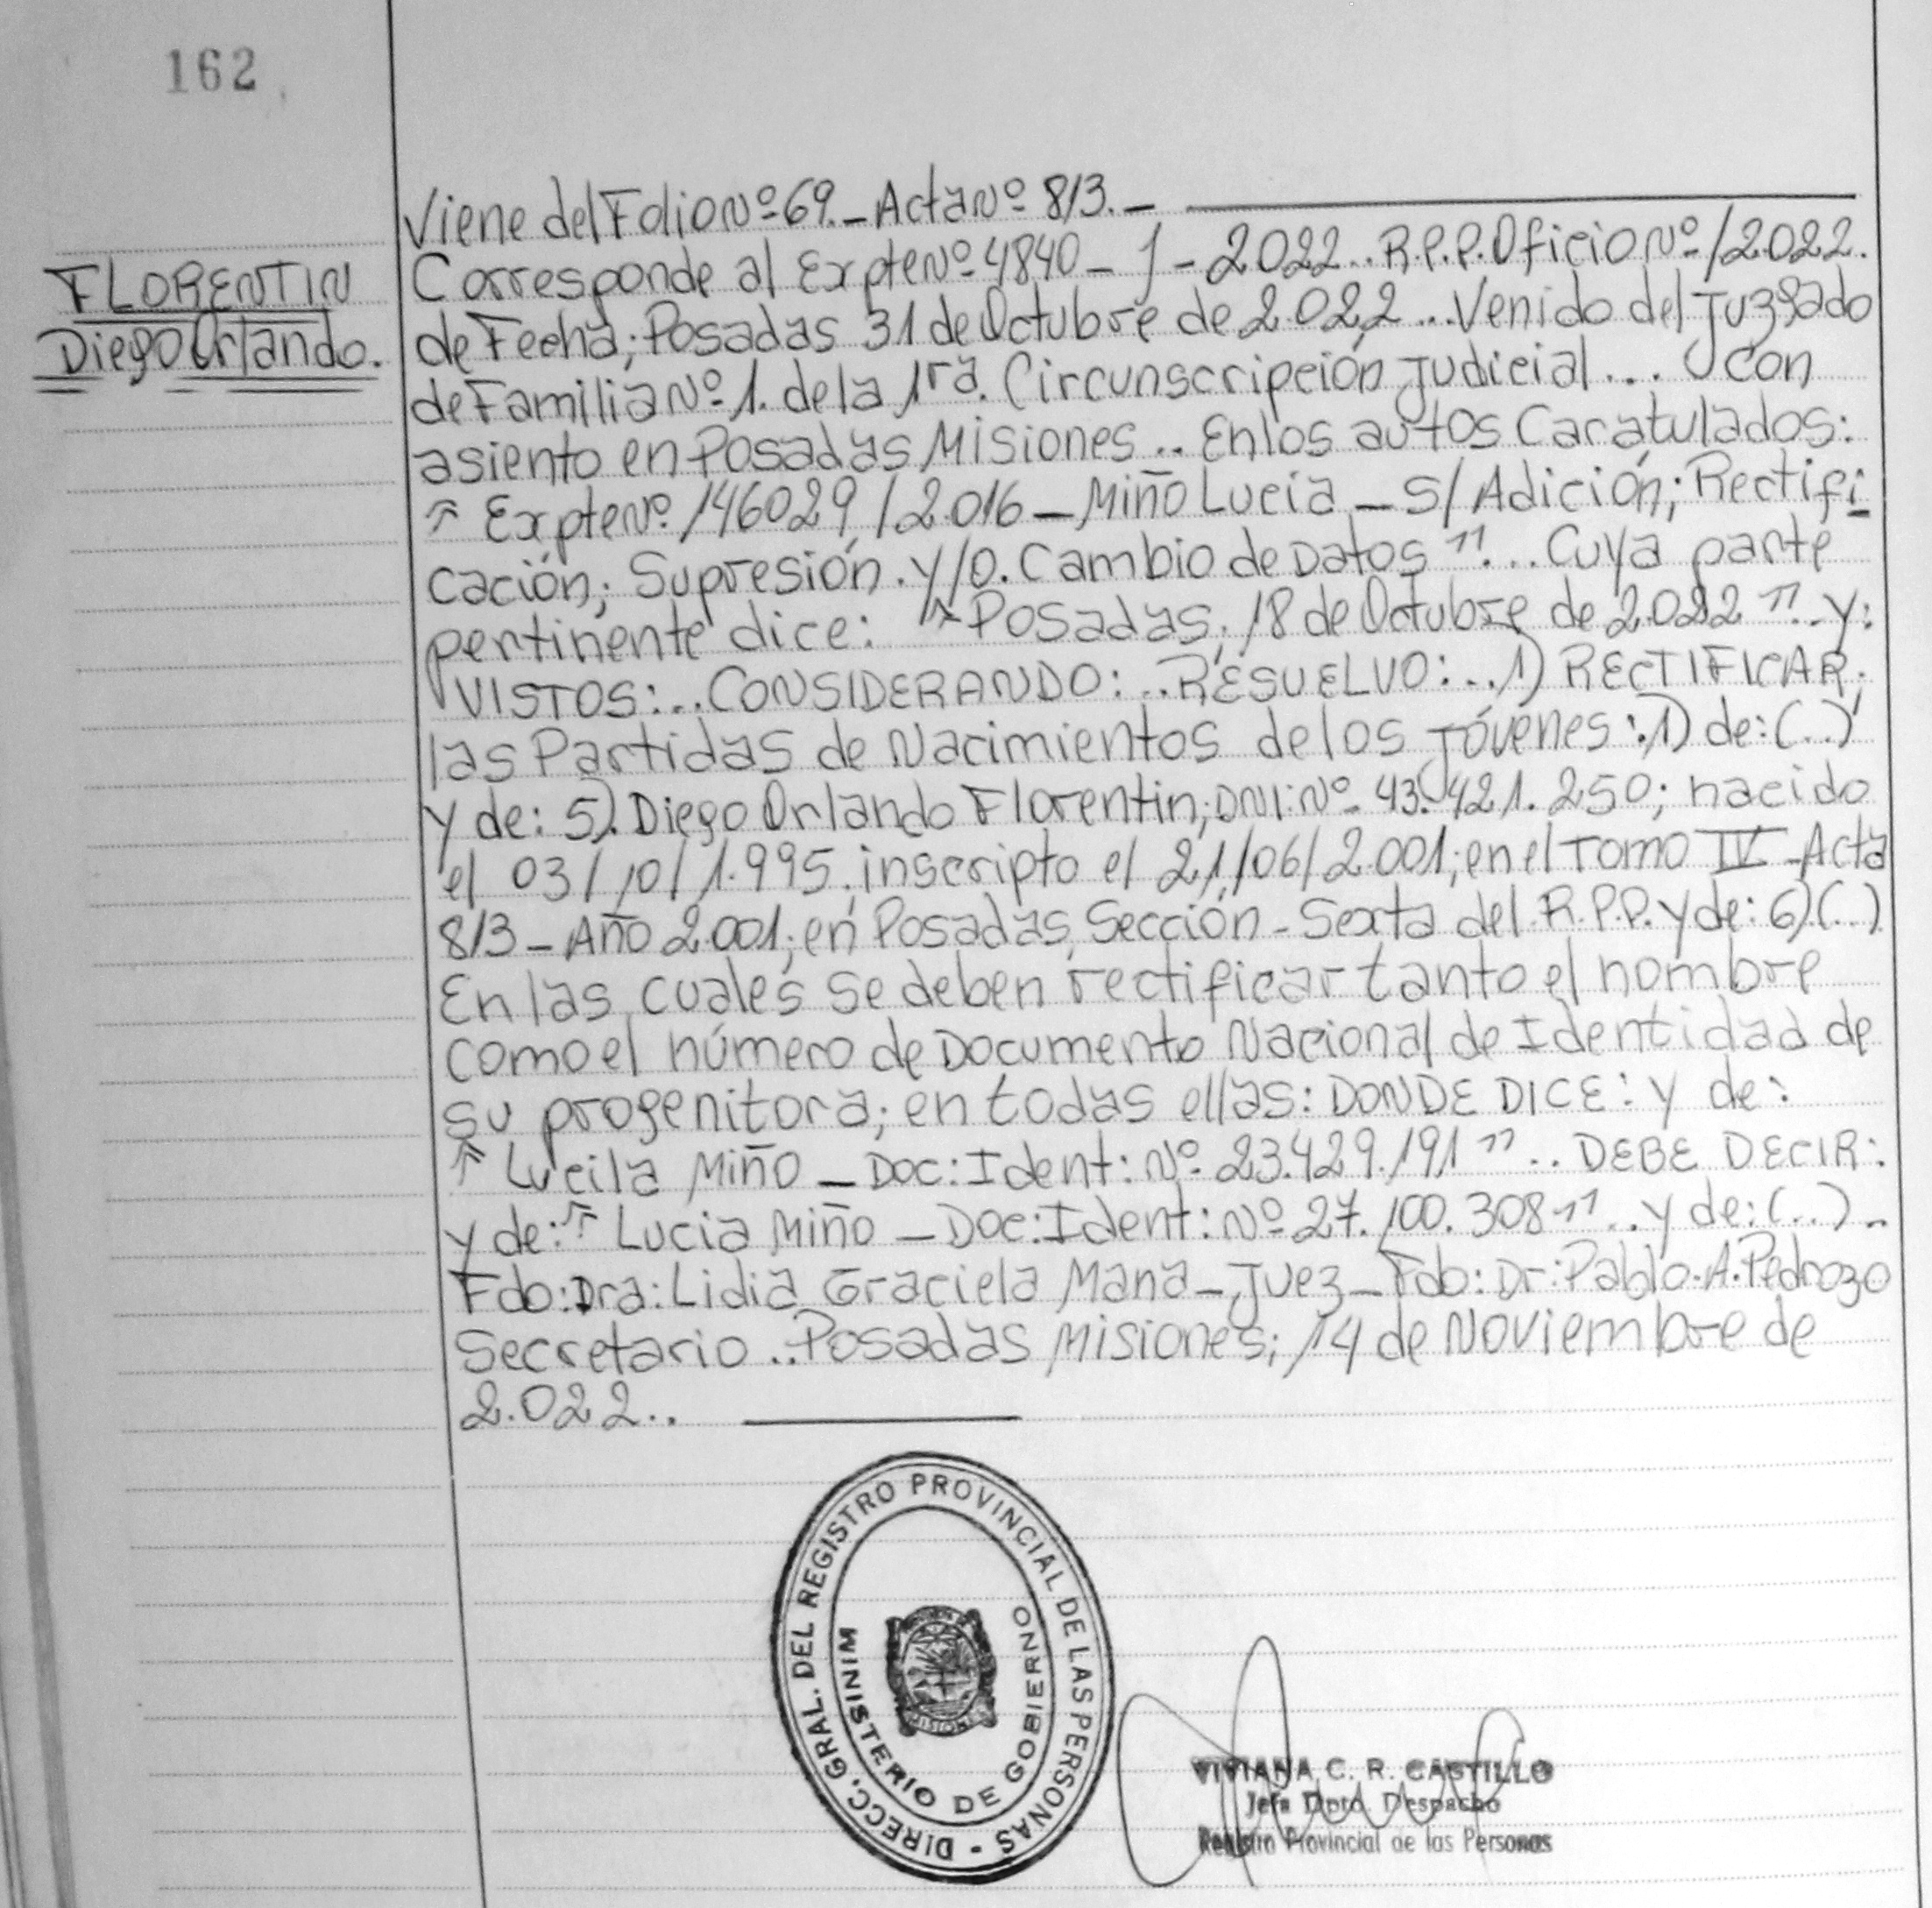 162
FLORENTIN
Diego Orlando.
Viene del Folio Nº 69._ Acta Nº 813._
Corresponde al Expte Nº 4840 _ J - 2022.. R.P.P. Oficio Nº /2022.
de Fecha; Posadas 31 de Octubre de 2022 .. Venido del Juzgado
de Familia Nº 1. de la 1ra. Circunscripción Judicial... Con
asiento en Posadas Misiones .. En los autos Caratulados:
" Expte Nº 146029 / 2016 _ Miño Lucia _ S/ Adición; Rectifi
cación; Supresión. y/o. Cambio de Datos "... Cuya parte
pertinente dice: " Posadas, 18 de Octubre de 2022 ".. y:
VISTOS:.. CONSIDERANDO:.. RESUELVO:.. 1) RECTIFICAR;
las Partidas de Nacimientos de los Jóvenes: 1) de: (..)
y de: 5). Diego Orlando Florentin; DNI: Nº 43.421.250; nacido
el 03/10/1.995, inscripto el 21/06/2.001; en el Tomo IV - Acta
813 _ Año 2.001; en Posadas, Sección - Sexta del R.P.P. y de: 6) (..)
En las cuales se deben rectificar tanto el nombre
como el número de Documento Nacional de Identidad de
su progenitora; en todas ellas: DONDE DICE: y de:
" Lucila Miño _ Doc: Ident: Nº 23.429.191 ".. DEBE DECIR:
y de: " Lucia Miño _ Doc: Ident: Nº 27.100.308 ".. y de: (..)_
Fdo: Dra: Lidia Graciela Mana _ Juez _ Fdo: Dr: Pablo. A. Pedrozo
Secretario .. Posadas Misiones; 14 de Noviembre de
2.022..
DIRECC. GRAL. DEL REGISTRO PROVINCIAL DE LAS PERSONAS -
MINISTERIO DE GOBIERNO
MISIONES
VIVIANA C. R. CASTILLO
Jefa Dpto. Despacho
Registro Provincial de las Personas